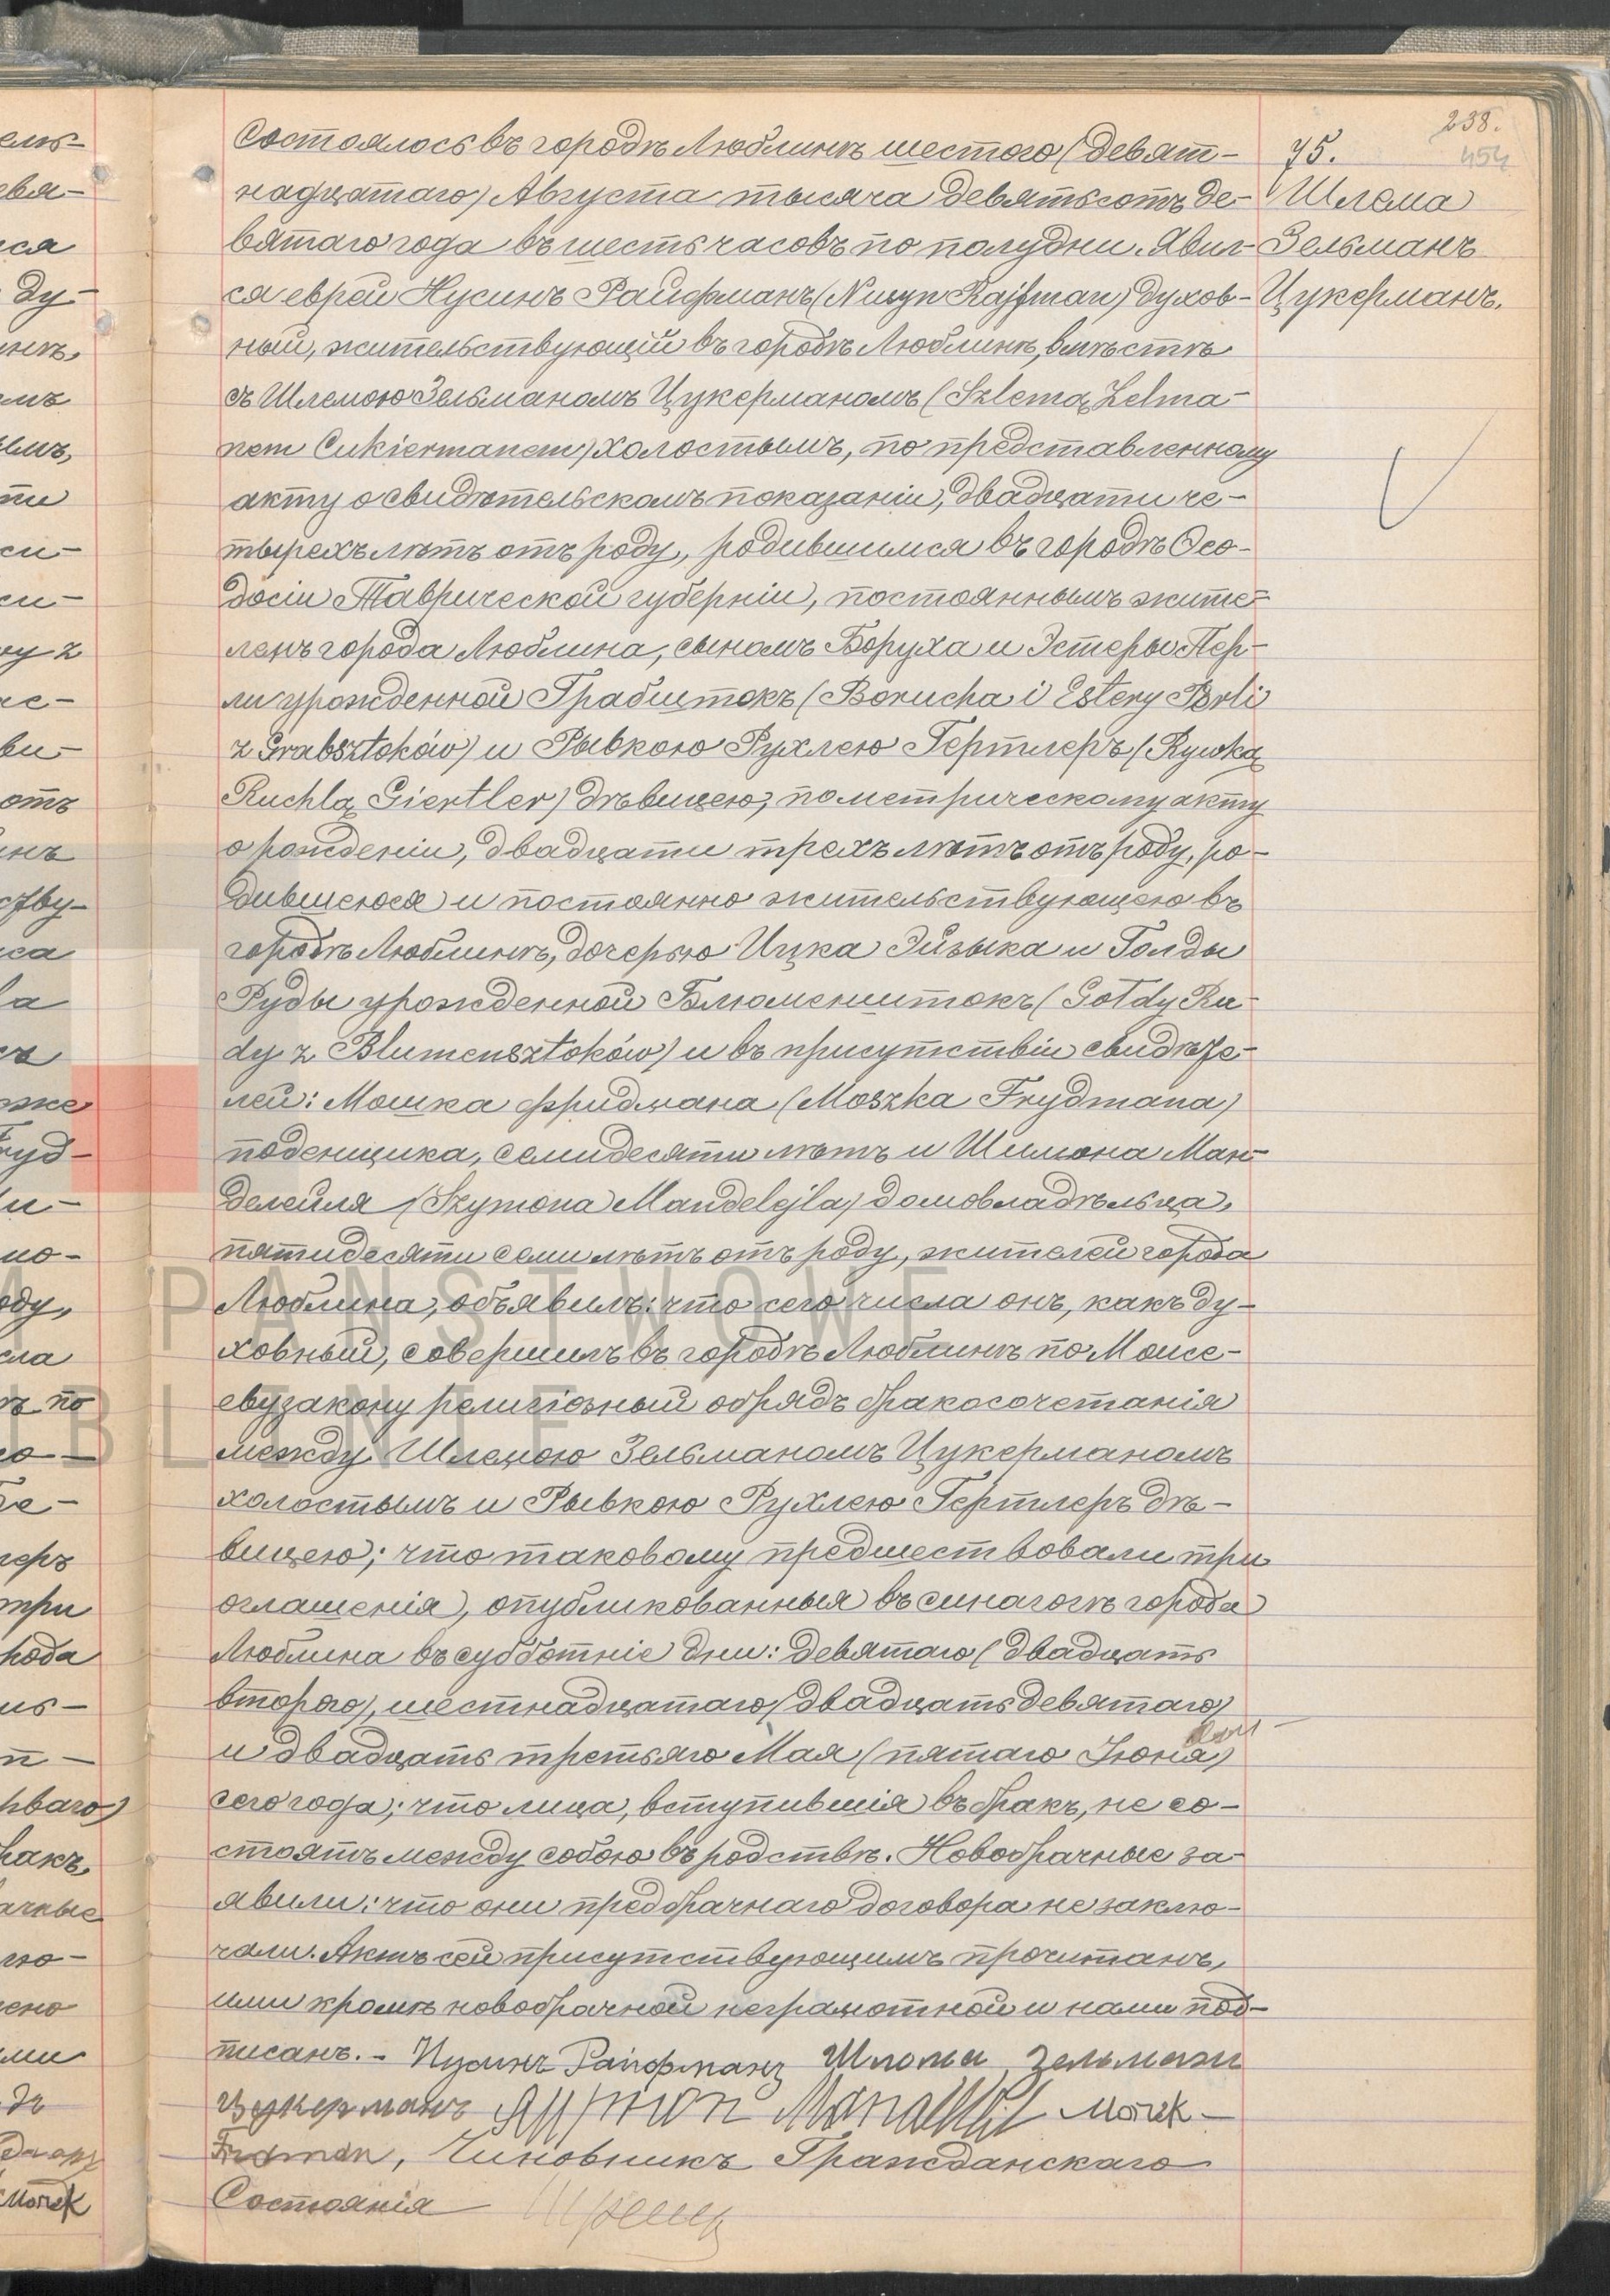 238.
454
75.
Шлема
Зельманъ
Цукерманъ.
Состоялось въ городѣ Люблинѣ шестого (девят-
надцатаго) Августа тысяча девятьсотъ де-
вятаго года въ шесть часовъ по полудни. Явил-
ся еврей Нусинъ Райфманъ (Nusyn Rajfman) духов-
ный, жительствующій въ городѣ Люблинѣ, вмѣстѣ
съ Шлемою Зельманомъ Цукерманомъ (Szlemą Zelma-
nem Cukiermanem) холостымъ, по представленному
акту о свидѣтельскомъ показаніи, двадцати че-
тырехъ лѣтъ отъ роду, родившимся въ городѣ Ѳео-
досіи Таврической губерніи, постояннымъ жите-
лемъ города Люблина, сыномъ Боруха и Эстеры Пер-
ли урожденной Грабштокъ (Borucha i Estery Perli
z Grabsztoków) и Рывкою Рухлею Гертлеръ (Rywką
Ruchlą Giertler) дѣвицею, по метрическому акту
о рожденіи, двадцати трехъ лѣтъ отъ роду, ро-
дившеюся и постоянно жительствующею въ
городѣ Люблинѣ, дочерью Ицка Эйзыка и Голды
Руды урожденной Блюменштокъ (Gołdy Ru-
dy z Blumensztoków) и въ присутствіи свидѣте-
лей: Мошка Фридмана (Moszka Frydmana)
поденщика, семидесяти лѣтъ и Шимона Ман-
делейля (Szymona Mandelejla) домовладѣльца,
пятидесяти семи лѣтъ отъ роду, жителей города
Люблина, объявилъ: что сего числа онъ, какъ ду-
ховный, совершилъ въ городѣ Люблинѣ по Моисе-
еву закону религіозный обрядъ бракосочетанія
между Шлемою Зельманомъ Цукерманомъ
холостымъ и Рывкою Рухлею Гертлеръ дѣ-
вицею; что таковому предшествовали три
оглашенія, опубликованныя въ синагогѣ города
Люблина въ субботніе дни: девятаго (двадцать
второго), шестнадцатаго (двадцать девятаго)
и двадцать третьяго Мая (пятаго Іюня)
сего года; что лица, вступившія въ бракъ, не со-
стоятъ между собою въ родствѣ. Новобрачные за-
явили: что они предбрачнаго договора не заклю-
чали. Актъ сей присутствующимъ прочитанъ,
ими кромѣ новобрачной неграмотной и нами под-
писанъ. - Нусинъ Райфманъ Шлома Зельманъ
Цукерманъ Morek
Fridman, Чиновникъ Гражданскаго
Состоянія
PAŃSTWOWE